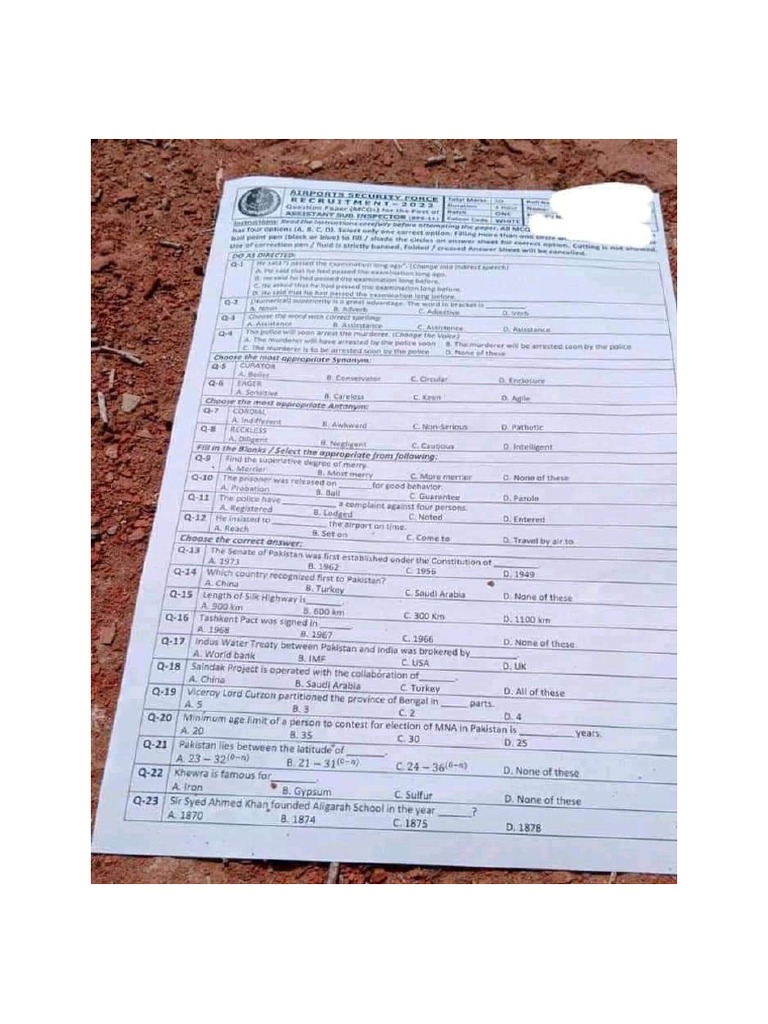 AIRPORTS SECURITY FORCE
RECRUITMENT - 2022
Question Paper (MCQs) for the Post of
ASSISTANT SUB INSPECTOR (BPS-11)
Total Marks
Duration
Batch ONE
Colour Code WHITE
Roll No
Name
Instructions: Read the instructions carefully before attempting the paper. All MCQ
has four options (A, B, C, D). Select only one correct option. Filling more than one circle
ball point pen (black or blue) to fill / shade the circles on answer sheet for correct option. Cutting is not allowed.
use of correction pen / fluid is strictly banned. Folded / creased Answer Sheet will be cancelled.
DO AS DIRECTED:
Q-1 He said "I passed the examination long ago". (Change into indirect speech)
A. He said that he had passed the examination long ago.
B. He said he had passed the examination long before.
C. He asked that he had passed the examination long before.
D. He said that he had passed the examination long before.
Q-2 (Numerical) superiority is a great advantage. The word in bracket is
A. Noun B. Adverb C. Adjective D. Verb
Q-3 Choose the word with correct spelling:
A. Assistance B. Assisstance C. Assistence D. Asistance
Q-4 The police will soon arrest the murderer. (Change the Voice)
A. The Murderer will have arrested by the police soon B. The murderer will be arrested soon by the police
C. The Murderer is to be arrested soon by the police D. None of these
Choose the most appropriate Synonym:
Q-5 CURATOR
A. Boiler B. Conservator C. Circular D. Enclosure
Q-6 EAGER
A. Sensitive B. Careless C. Keen D. Agile
Choose the most appropriate Antonym:
Q-7 CORDIAL
A. Indifferent B. Awkward C. Non-Serious D. Pathetic
Q-8 RECKLESS
A. Diligent B. Negligent C. Cautious D. Intelligent
Fill in the Blanks / Select the appropriate from following:
Q-9 Find the superlative degree of merry.
A. Merrier B. Most merry C. More merrier D. None of these
Q-10 The prisoner was released on ______ for good behavior.
A. Probation B. Bail C. Guarantee D. Parole
Q-11 The police have ______ a complaint against four persons.
A. Registered B. Lodged C. Noted D. Entered
Q-12 He insisted to ______ the airport on time.
A. Reach B. Set on C. Come to D. Travel by air to
Choose the correct answer:
Q-13 The Senate of Pakistan was first established under the Constitution of ______
A. 1973 B. 1962 C. 1956 D. 1949
Q-14 Which country recognized first to Pakistan?
A. China B. Turkey C. Saudi Arabia D. None of these
Q-15 Length of Silk Highway is ______
A. 900 km B. 600 km C. 300 Km D. 1100 km
Q-16 Tashkent Pact was signed in ______
A. 1968 B. 1967 C. 1966 D. None of these
Q-17 Indus Water Treaty between Pakistan and India was brokered by ______
A. World bank B. IMF C. USA D. UK
Q-18 Saindak Project is operated with the collaboration of ______.
A. China B. Saudi Arabia C. Turkey D. All of these
Q-19 Viceroy Lord Curzon partitioned the province of Bengal in ______ parts.
A. 5 B. 3 C. 2 D. 4
Q-20 Minimum age limit of a person to contest for election of MNA in Pakistan is ______ years.
A. 20 B. 35 C. 30 D. 25
Q-21 Pakistan lies between the latitude of ______.
A. 23 – 32(0–n) B. 21 – 31(0–n) C. 24 – 36(0–n) D. None of these
Q-22 Khewra is famous for ______.
A. Iron B. Gypsum C. Sulfur D. None of these
Q-23 Sir Syed Ahmed Khan founded Aligarah School in the year ______?
A. 1870 B. 1874 C. 1875 D. 1878